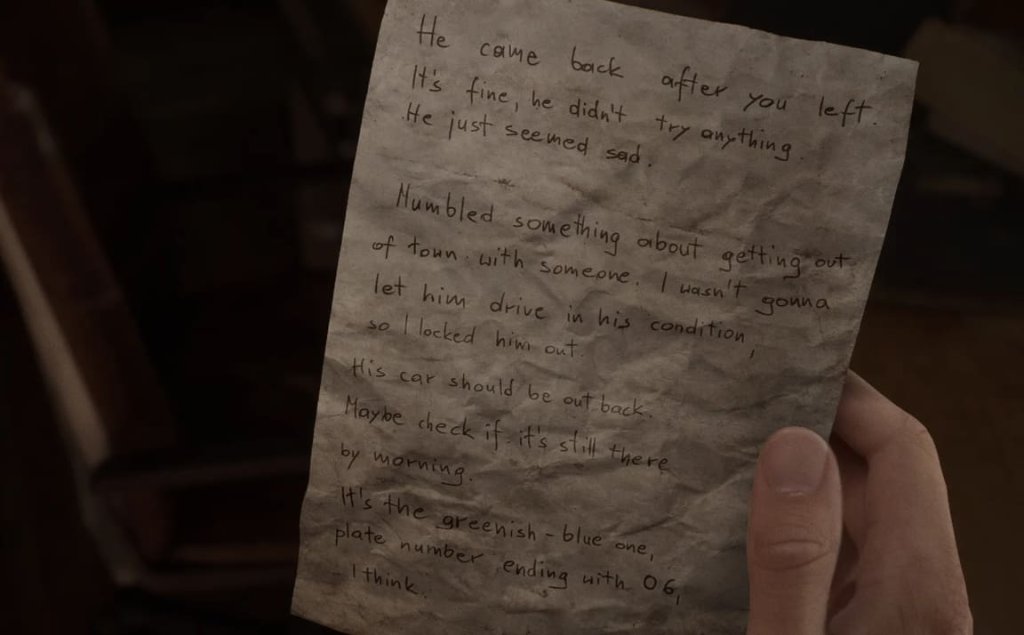 He came back after you left.
It's fine, he didn't try anything.
He just seemed sad.
Mumbled something about getting out
of town with someone. I wasn't gonna
let him drive in his condition,
so I locked him out.
His car should be out back.
Maybe check if it's still there
by morning.
It's the greenish-blue one,
plate number ending with 06,
I think.